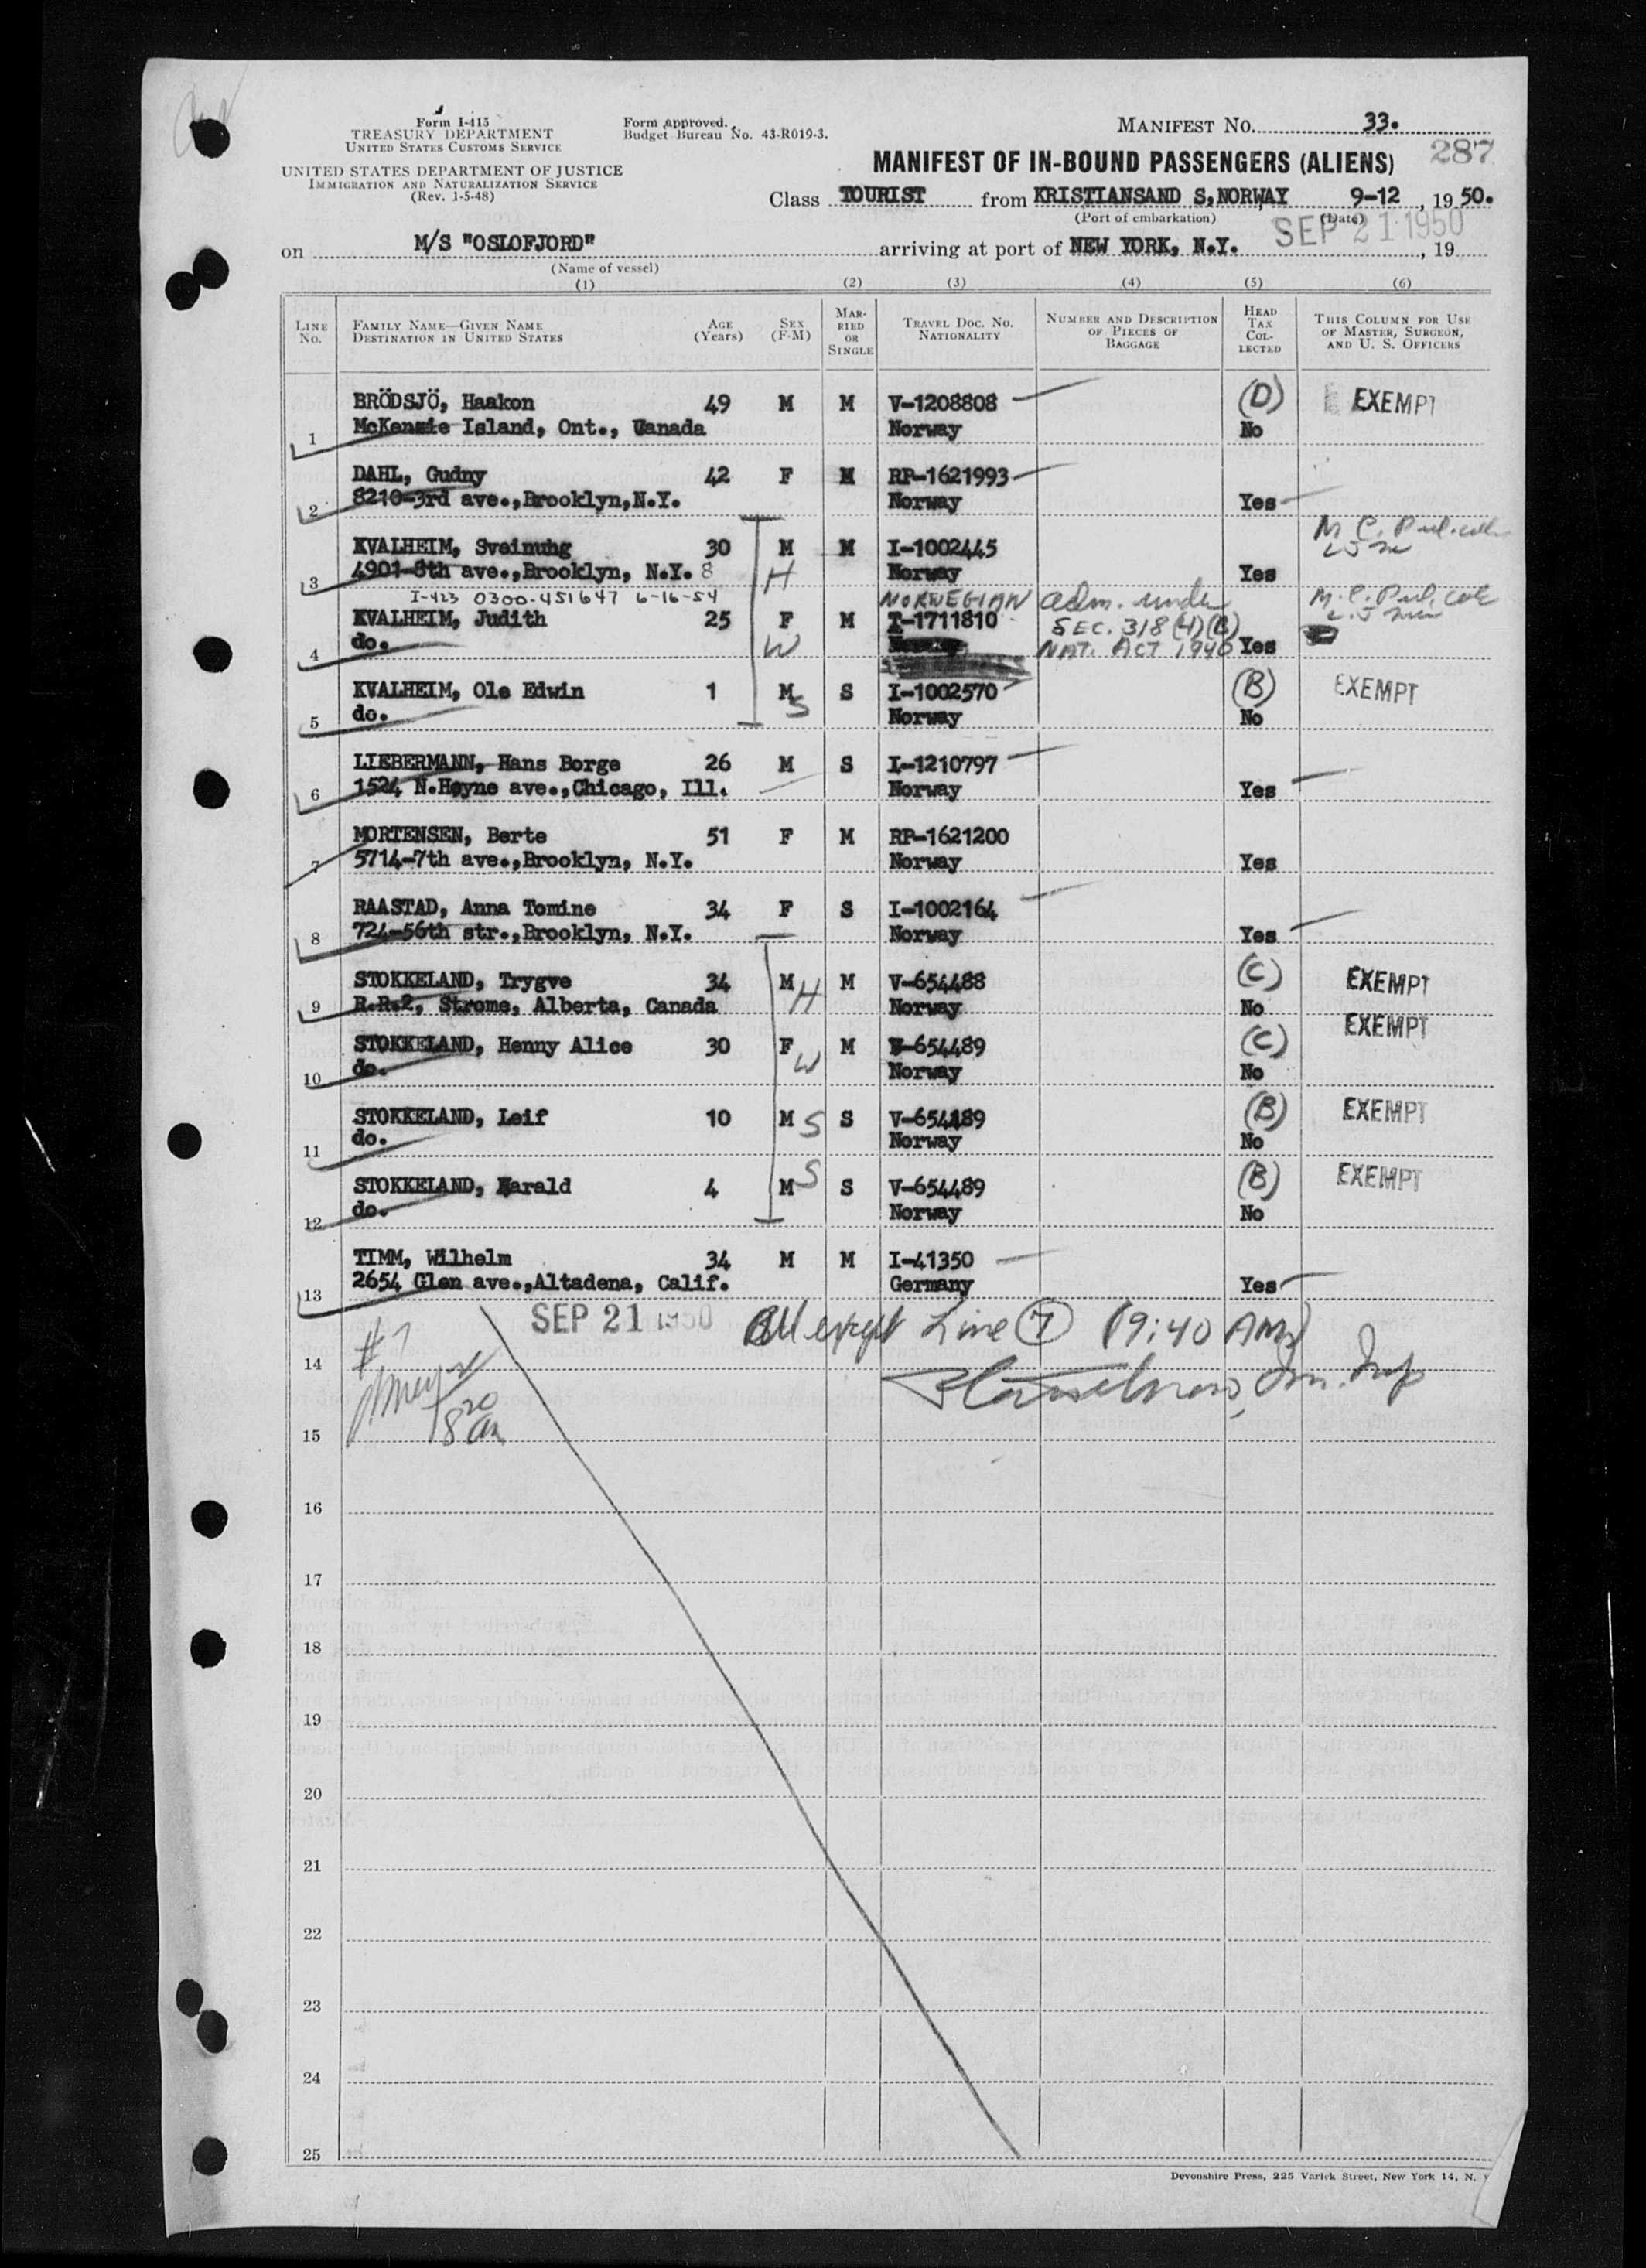 Form I-415
TREASURY DEPARTMENT
UNITED STATES CUSTOMS SERVICE
UNITED STATES DEPARTMENT OF JUSTICE
IMMIGRATION AND NATURALIZATION SERVICE
(Rev. 1-5-48)
Form approved.
Budget Bureau No. 43-R019-3.
MANIFEST NO. 33.
287
MANIFEST OF IN-BOUND PASSENGERS (ALIENS)
Class TOURIST from KRISTIANSAND S, NORWAY 9-12, 1950.
(Port of embarkation) (Date)
SEP 21 1950
on M/S "OSLOFJORD" arriving at port of NEW YORK, N.Y. , 19
(Name of vessel)
(1) (2) (3) (4) (5) (6)
LINE NO. FAMILY NAME—GIVEN NAME DESTINATION IN UNITED STATES AGE (Years) SEX (F-M) MARRIED OR SINGLE TRAVEL DOC. NO. NATIONALITY NUMBER AND DESCRIPTION OF PIECES OF BAGGAGE HEAD TAX COLLECTED THIS COLUMN FOR USE OF MASTER, SURGEON, AND U. S. OFFICERS
BRÖDSJÖ, Haakon 49 M M V-1208808 (D) EXEMPT
1 McKenzie Island, Ont., Canada Norway No
DAHL, Gudny 42 F M RP-1621993
2 8210-3rd ave., Brooklyn, N.Y. Norway Yes
KVALHEIM, Sveinung 30 M M I-1002445 M.C.
3 4901-8th ave., Brooklyn, N.Y. 8 H Norway Yes
I-423 0300-451647 6-16-54 NORWEGIAN adm. under
KVALHEIM, Judith 25 F M I-1711810 SEC. 318 (4)(B) M.C.
4 do. W NAT. ACT 1940 Yes
KVALHEIM, Ole Edwin 1 M S I-1002570 (B) EXEMPT
5 do. S Norway No
LIEBERMANN, Hans Borge 26 M S I-1210797
6 1524 N.Høyne ave., Chicago, Ill. Norway Yes
MORTENSEN, Berte 51 F M RP-1621200
7 5714-7th ave., Brooklyn, N.Y. Norway Yes
RAASTAD, Anna Tomine 34 F S I-1002164
8 724-56th str., Brooklyn, N.Y. Norway Yes
STOKKELAND, Trygve 34 M H M V-654488 (C) EXEMPT
9 R.R.2, Strome, Alberta, Canada Norway No
STOKKELAND, Henny Alice 30 F W M V-654489 (C) EXEMPT
10 do. Norway No
STOKKELAND, Leif 10 M S S V-654489 (B) EXEMPT
11 do. Norway No
STOKKELAND, Harald 4 M S S V-654489 (B) EXEMPT
12 do. Norway No
TIMM, Wilhelm 34 M M I-41350
13 2654 Glen ave., Altadena, Calif. Germany Yes
SEP 21 1950 All except Line 7 (9:40 AM)
#7
14 Im. Insp
15
16
17
18
19
20
21
22
23
24
25
Devonshire Press, 225 Varick Street, New York 14, N.